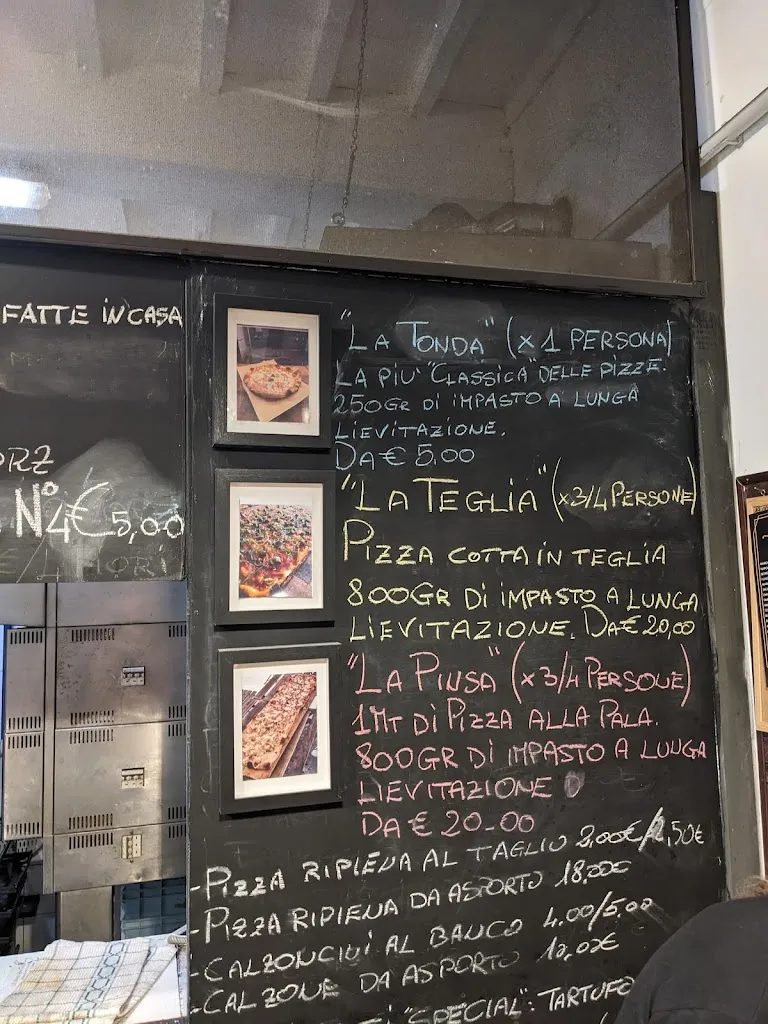 FATTE IN CASA
ORZ
N°4€5,00
"LA TONDA" (x 1 PERSONA)
LA PIU' "CLASSICA" DELLE PIZZE.
250GR DI IMPASTO A LUNGA
LIEVITAZIONE.
DA € 5,00
"LA TEGLIA" (x3/4 PERSONE)
PIZZA COTTA IN TEGLIA
800GR DI IMPASTO A LUNGA
LIEVITAZIONE. DA € 20,00
"LA PINSA" (x3/4 PERSONE)
1MT DI PIZZA ALLA PALA.
800GR DI IMPASTO A LUNGA
LIEVITAZIONE
DA € 20-00
-PIZZA RIPIENA AL TAGLIO 2,00€/2,50€
-PIZZA RIPIENA DA ASPORTO 18,00€
-CALZONCINI AL BANCO 4.00/5.00
-CALZONE DA ASPORTO 10,00€
"SPECIAL": TARTUFO